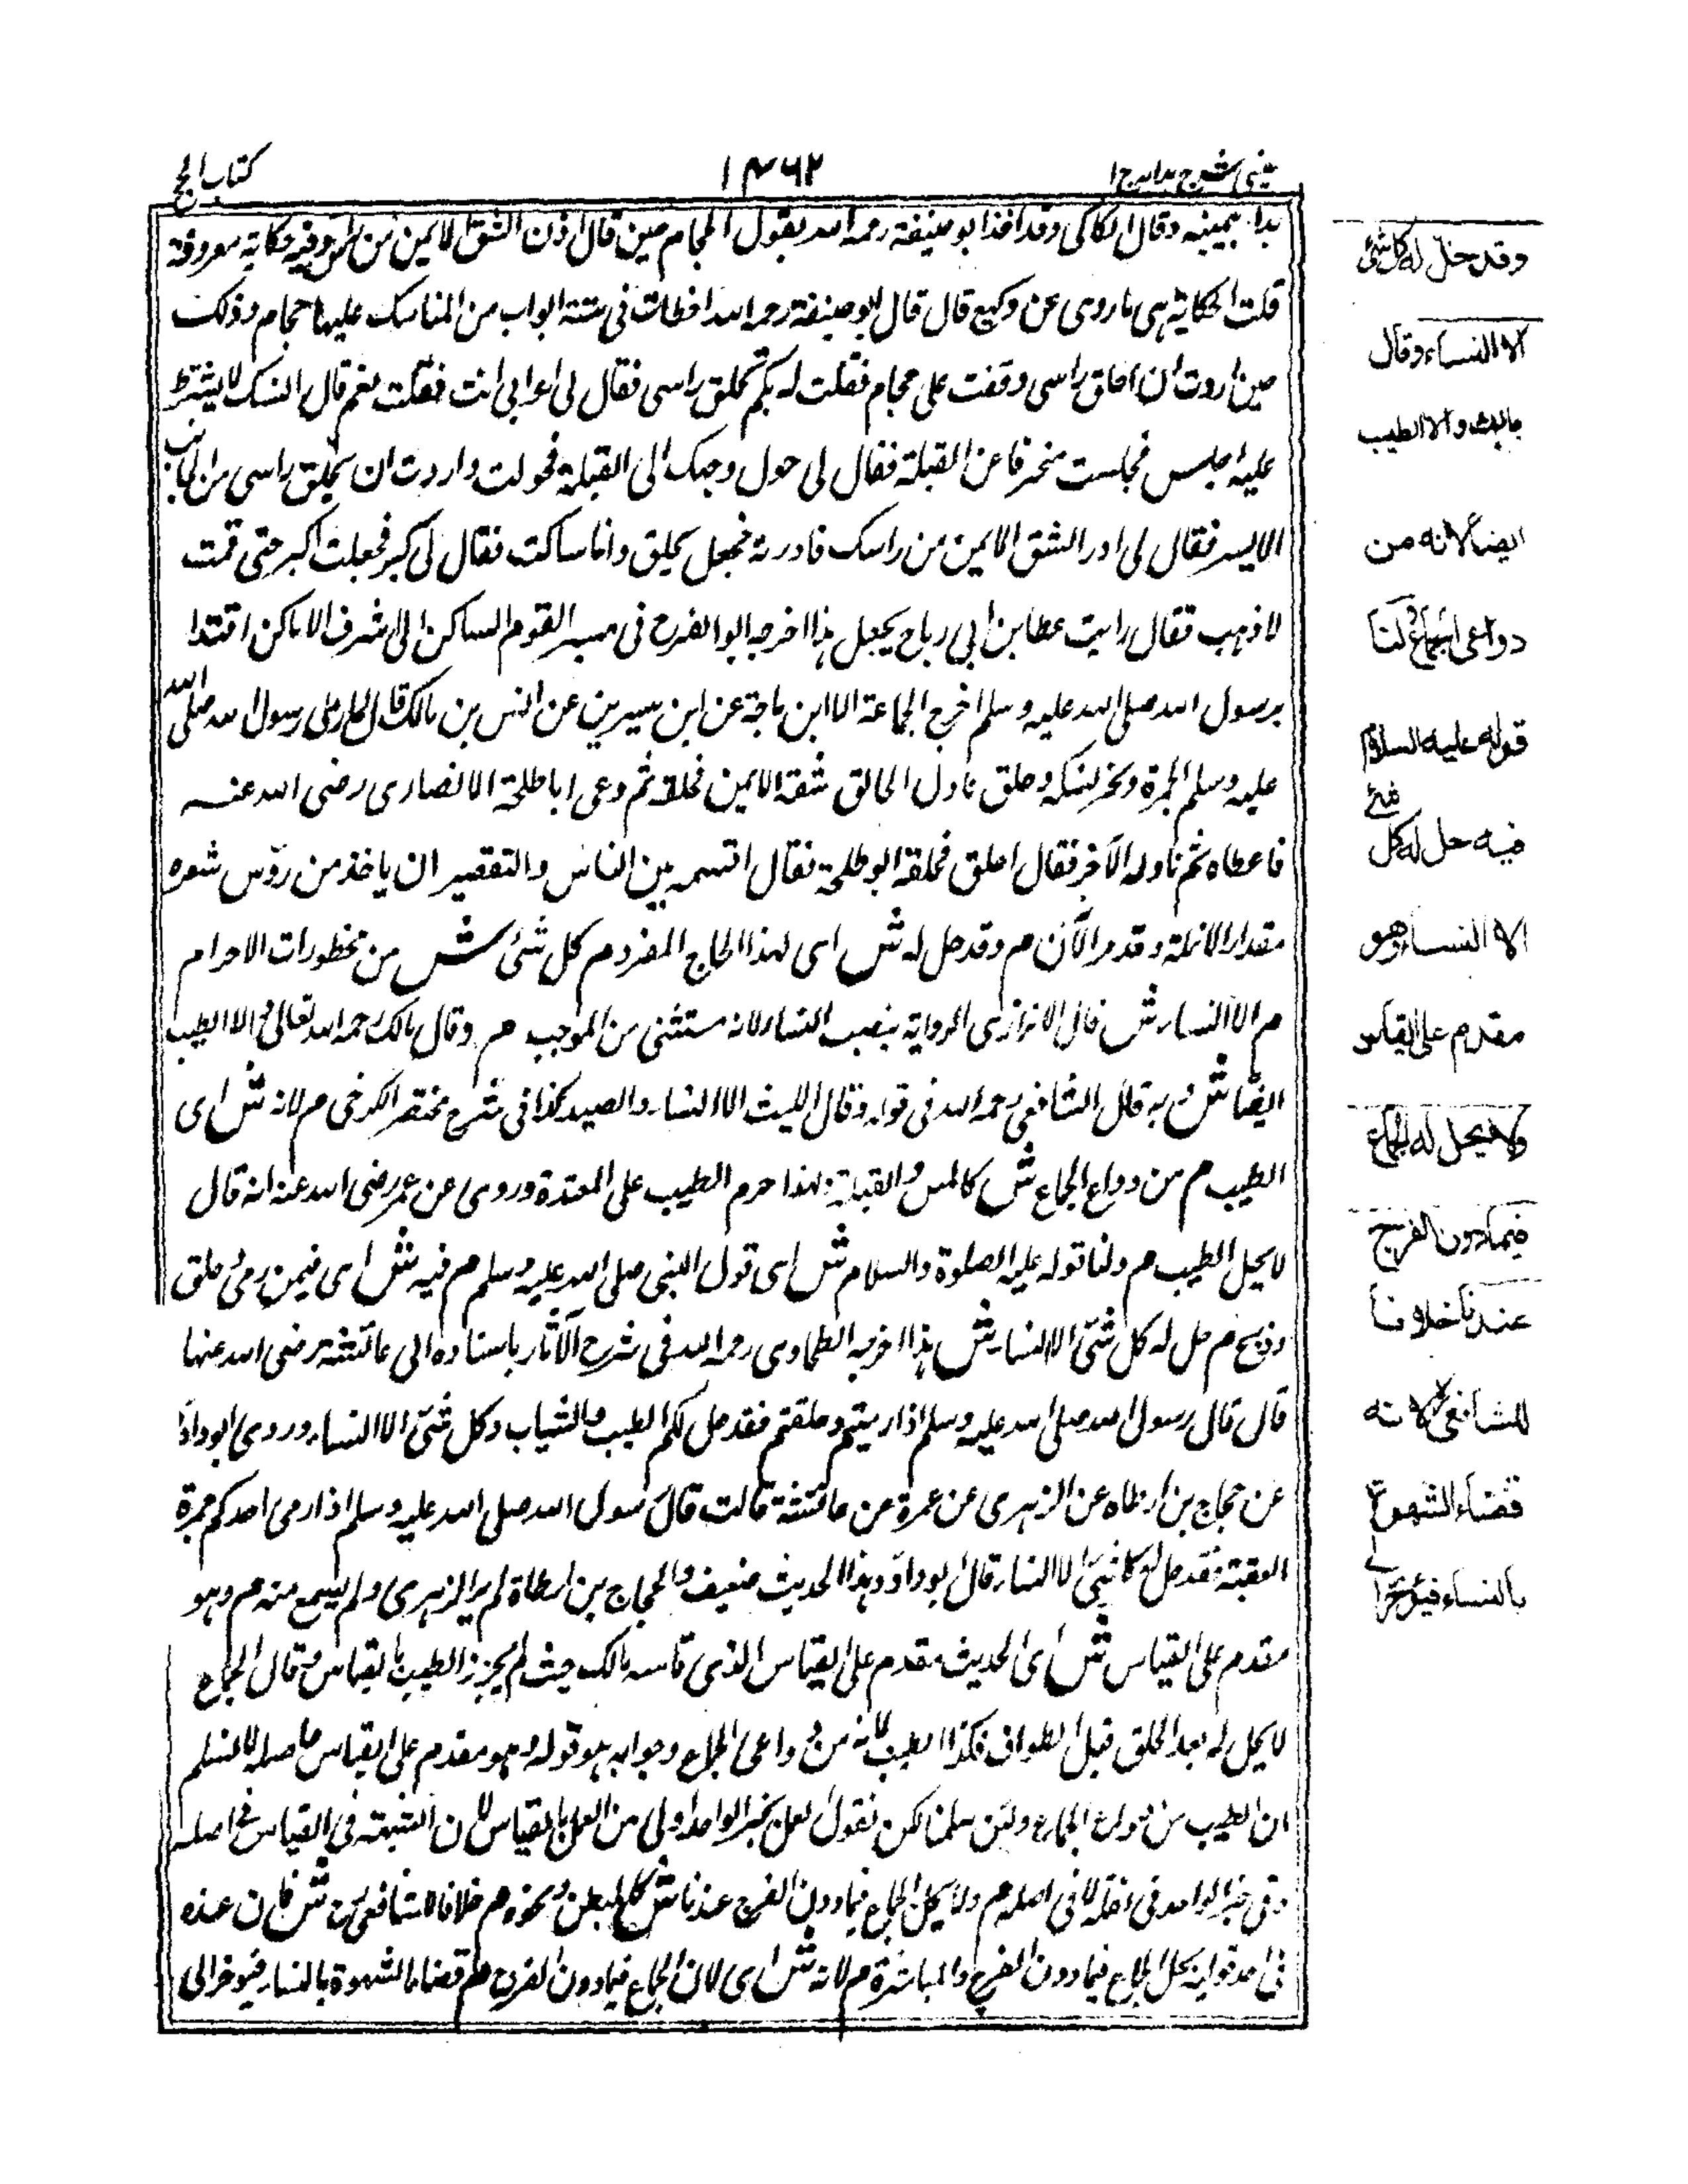 عینی شرح ہدایہ ج ۱
۱۴۶۲
کتاب الحج
بدا بیمینه وقال الکاکی وقد اخذ ابو حنیفة رحمه الله بقول الحجام حین قال اذن الشق الایمن من وفیه حکایة معروفة
قلت الحکایة هی ما روی عن وکیع قال قال لی ابو حنیفة رحمه الله اخطات فی ستة ابواب من المناسک علینها حجام وذلک
حین اردت ان احلق راسی وقفت علی حجام فقلت له بکم تحلق راسی فقال لی اعرابی انت فقلت نعم قال النسک لا یشترط
علیه اجلس فجلست منحرفا عن القبلة فقال لی حول وجهک الی القبلة فحولت واردت ان یحلق راسی من الجانب
الایسر فقال لی ادر الشق الایمن من راسک فادرته فجعل یحلق وانا ساکت فقال لی کبر فجعلت اکبر حتی قمت
لاذهب فقال رایت عطا بن ابی رباح یجعل هذا اخرجه ابو الفرج فی مسیر القوم الساکن الی اشرف الاماکن اقتدا
برسول الله صلی الله علیه وسلم اخرج الجماعة الا ابن ماجة عن ابن سیرین عن انس بن مالک قال لما رمی رسول الله صلی الله
علیه وسلم الجمرة ونحر نسکه وحلق ناول الحالق شقه الایمن فحلقه ثم دعی ابا طلحة الانصاری رضی الله عنه
فاعطاه ثم ناوله الآخر فقال احلق فحلقه ابو طلحة فقال اقسمه بین الناس والتقصیر ان یاخذ من رؤس شعره
مقدار الانملة وقد مر الآن م وقد حل له ش ای لهذا الحاج المفرد م کل شئ ش من محظورات الاحرام
م الا النساء ش قال الاترازی الروایة بنصب النساء لانه مستثنی من الموجب م وقال مالک رحمه الله تعالی والا الطیب
ایضا ش وبه قال الشافعی رحمه الله فی قوله وقال اللیث الا النساء والصید کذا فی شرح مختصر الکرخی م لانه ش ای
الطیب م من دواع الجماع ش کالمس والقبلة ولهذا حرم الطیب علی المعتدة وروی عن عمر رضی الله عنه انه قال
لا یحل الطیب م ولنا قوله علیه الصلوة والسلام ش ای قول النبی صلی الله علیه وسلم م فیه ش ای فیمن رمی وحلق
وذبح م حل له کل شئ الا النساء ش هذا اخرجه الطحاوی رحمه الله فی شرح الآثار باسناده الی عائشة رضی الله عنها
قال قال رسول الله صلی الله علیه وسلم اذا رمیتم وحلقتم فقد حل لکم الطیب والثیاب وکل شئ الا النساء وروی ابو داؤد
عن حجاج بن ارطاه عن الزهری عن عمرة عن عائشة قالت قال رسول الله صلی الله علیه وسلم اذا رمی احدکم جمرة
العقبة فقد حل له کل شئ الا النساء قال ابو داؤد وهذا الحدیث ضعیف والحجاج بن ارطاة لم یر الزهری ولم یسمع منه م وهو
مقدم علی القیاس ش ای الحدیث مقدم علی القیاس الذی قاسه مالک حیث لم یجز الطیب بالقیاس وقال الجماع
لا یحل له بعد الحلق قبل الطواف فکذا الطیب لانه من دواعی الجماع وجوابه هو قوله وهو مقدم علی القیاس حاصله لا نسلم
ان الطیب من دواع الجماع ولئن سلمنا لکن نقول العمل بخبر الواحد اولی من العمل بالقیاس لان الشبهة فی القیاس فی اصله
وفی خبر الواحد فی نقله لا فی اصله م ولا یحل الجماع فیما دون الفرج عندنا ش کالبطن ونحوه م خلافا للشافعی رح ش فان عنده
فی احد قولیه یحل الجماع فیما دون الفرج والمباشرة م لانه ش ای لان الجماع فیما دون الفرج م قضاء الشهوة بالنساء فیؤخر الی
وقد حل له کل شئ
الا النساء وقال
مالک والا الطیب
ایضا لانه من
دواعی الجماع ولنا
قوله علیه السلام
فیه حل له کل شئ
الا النساء وهو
مقدم علی القیاس
ولا یحل له الجماع
فیما دون الفرج
عندنا خلافا
للشافعی رح لانه
قضاء الشهوة
بالنساء فیؤخر الی